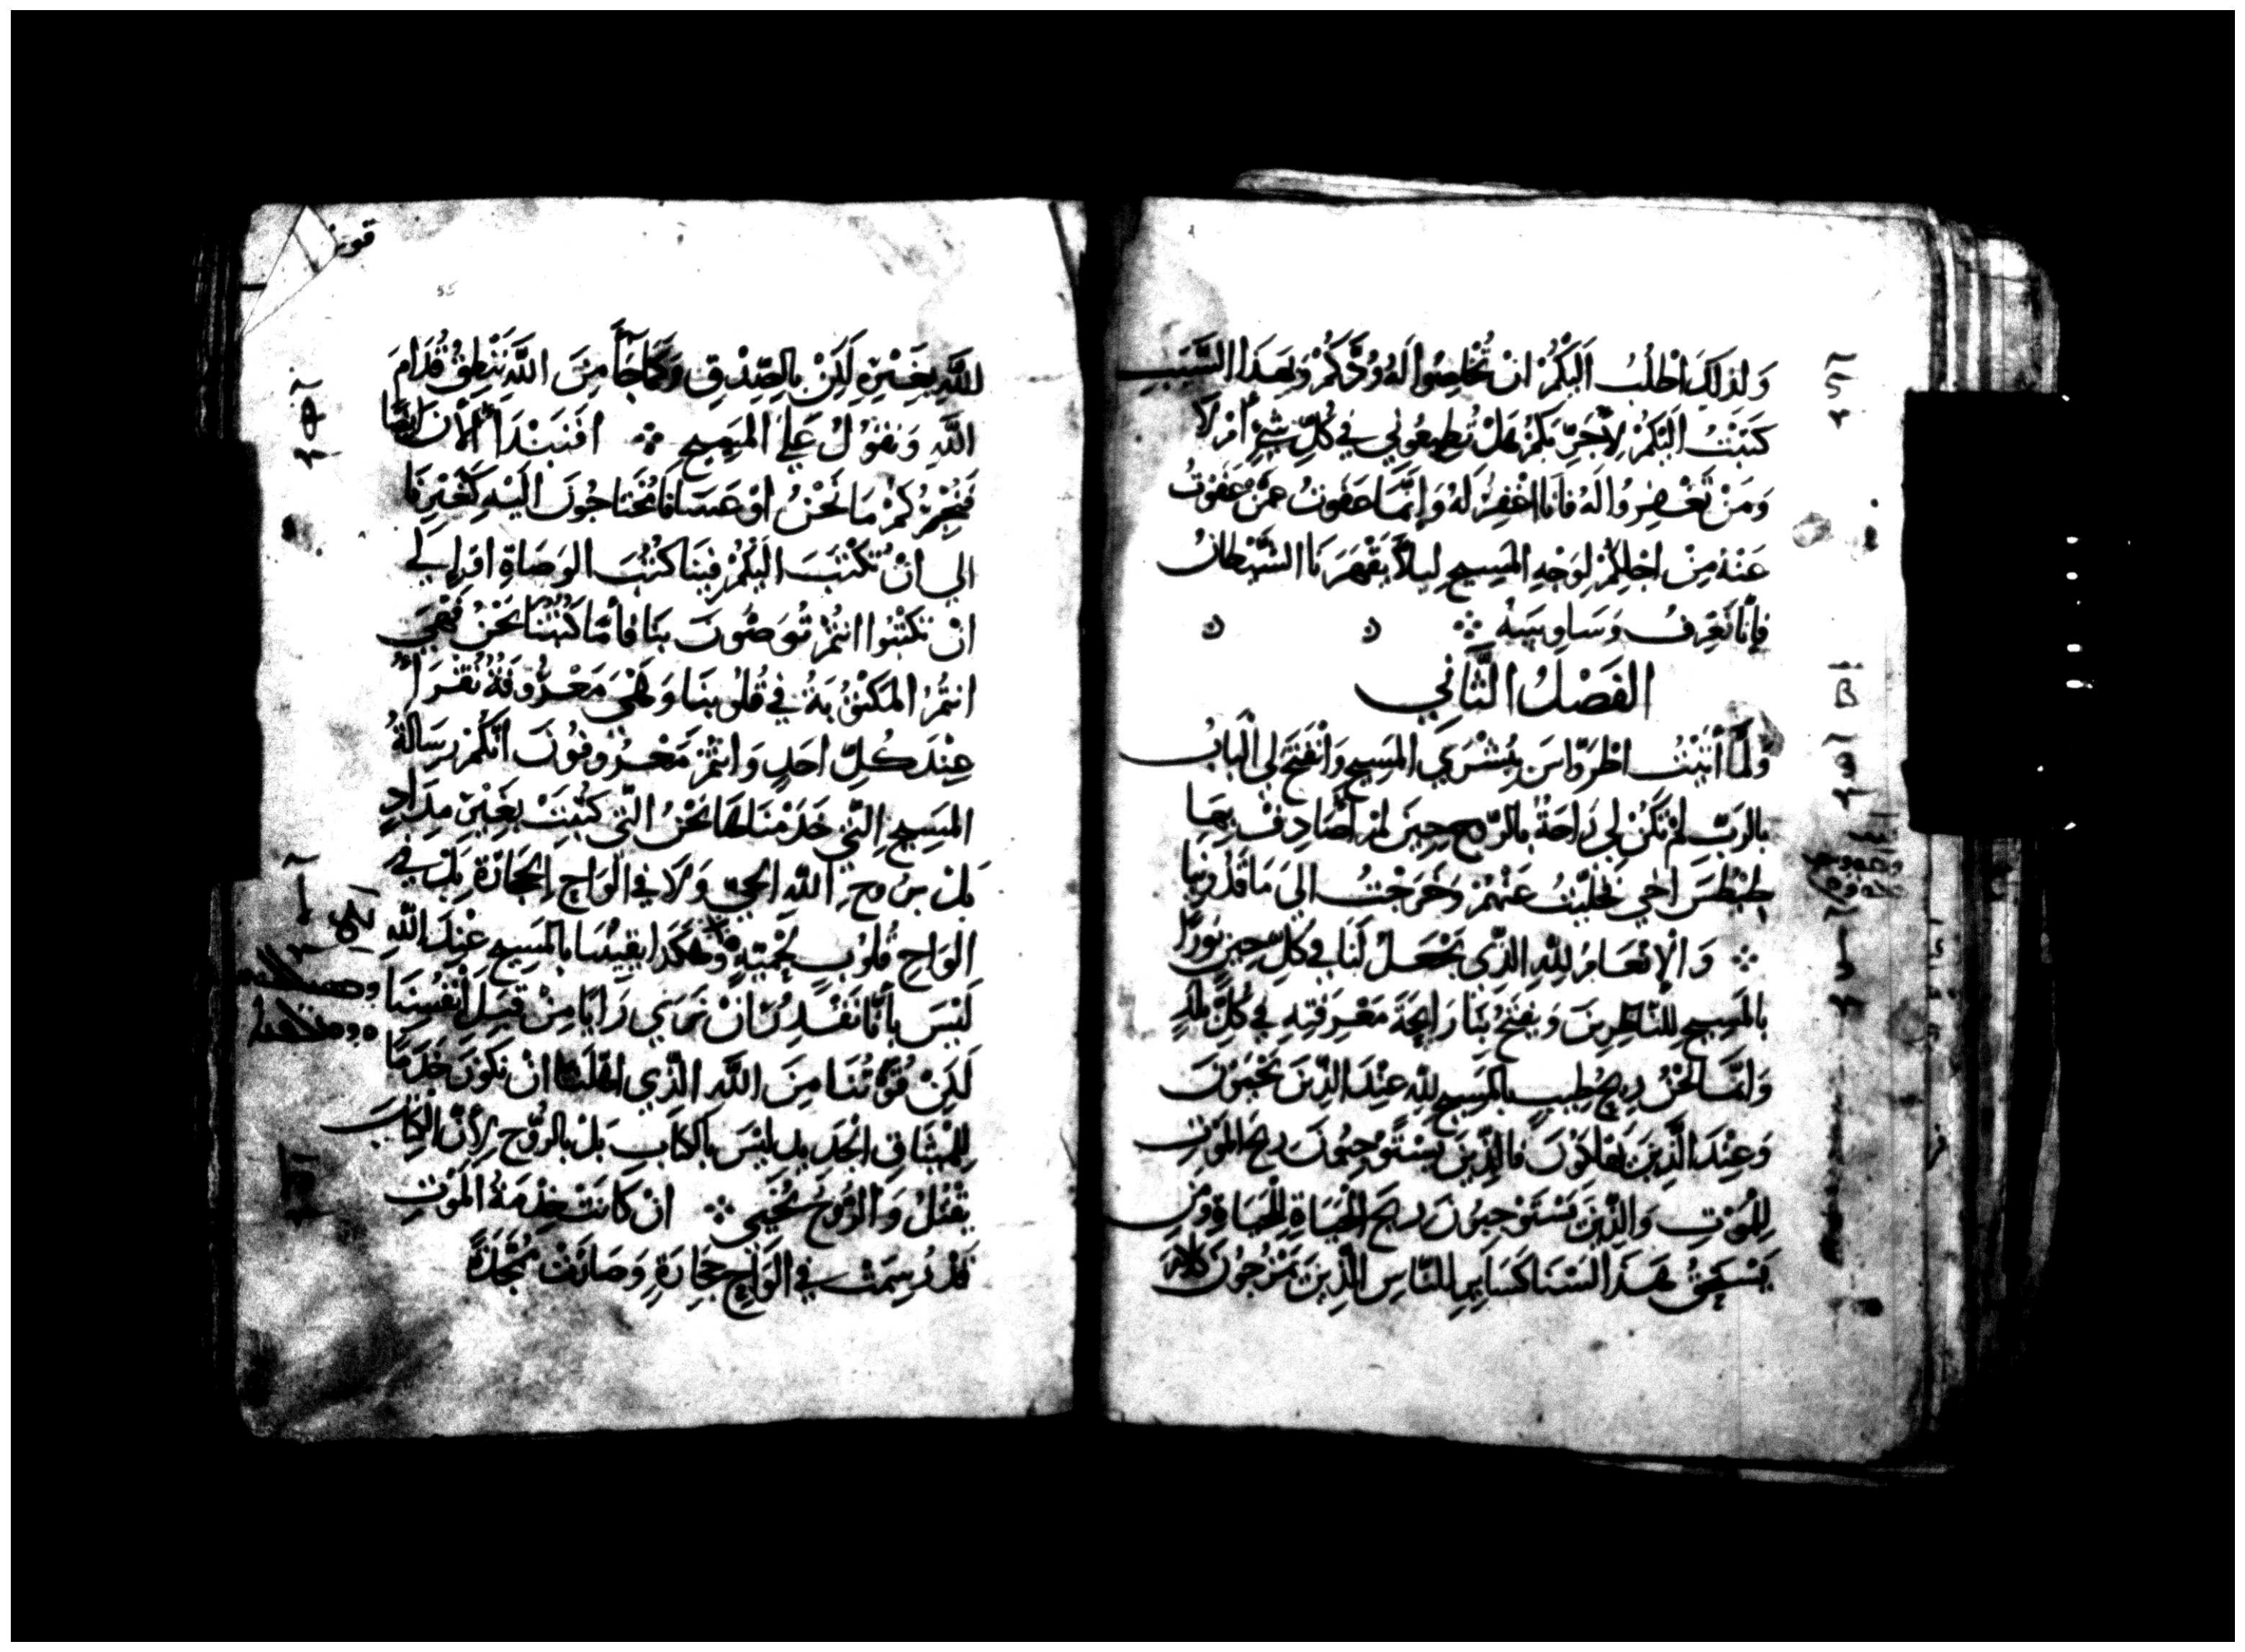 وَلذلِكَ اطْلُبُ اَليْكُمْ انْ تُخْلِصُوا لهُ وُدَّكُمْ وَبِهَذَا السَّبَبِ
كَتَبْتُ اليْكُمْ لِاُجَرِّبَكُمْ هَلْ تُطِيعُونِي فِي كُلِّ شَيْءٍ اَمْ لَا
وَمَنْ تَغْفِرُوا لَهُ فَانَا اغْفِرُ لَهُ وَاِنَّمَا عَفَوتُ عَمَّنْ عَفَوْتُ
عَنْهُ مِنْ اجْلِكُمْ لِوَجْهِ المَسِيحِ لِيَلاَّ يَقْهَرَنَا الشَّيْطَانُ
فَاِنَّا نَعْرِفُ وَسَاوِيسَهُ
الفَصْلُ الثَّانِي
وَلَمَّا اتَيْتُ اطْرَوَّاسَ بِبُشْرَي المَسِيحِ وَانْفَتَحَ لِي البَابُ
بالرَبِّ لَمْ تَكُنْ لِي رَاحَةُ بالرّوحِ حِينَ لَمْ اُصَادِفْ بِهَا
طِيْطُسَ اخِي تَخَلَّيْتُ عَنْهُمْ وَخَرَجْتُ الَي مَاقَدُونيا
وَالْاِنْعَامُ لِلّهِ الذّي يَجْعَلُ لَنَا فِي كُلِّ حِينٍ نورًا
بالمَسِيحِ لِلنّاظِرِينَ وَيفتَحُ بِنَا رَايحَةَ مَعْرِفَتِهِ فِي كُلِّ بلدٍ
وَانَّمَا نَحْنُ رِيحُ طِيبٍ بالمَسِيحِ لِلّهِ عِنْدَ الذّينَ يَحْيَوْنَ
وَعِنْدَ الَّذِينَ يَهْلَكُوْنَ فَالذّينَ يَسْتَوْجِبُونَ ريحَ المَوْتِ
لِلْمَوْتِ وَالذّينَ يَسْتَوْجِبُونَ ريحَ الحَيَاةِ لِلْحَيَاةِ وَمَنْ
يَسْتَحِقُ هَذَا لسْنَا كَسَايِرِ النَّاسِ الذّينَ يَمْزُجُونَ كلام
55
للّهِ بِغَيْرِهِ لَكِنْ بالصِّدْقِ وَكَمَا جَآءَ مِنَ اللَّهِ نَنْطِقُ قُدَّامَ
اللّهِ وَنقُولُ عَلَي المَسِيحِ افَنَبْتَدَا الْانَ ايْضًا
فَنُخْبِرُكُمْ مَا نَحْنُ اوْ عَسَانَا مُحْتَاجُونَ الَيْهِ كَغَيْرِنَا
الي انْ تُكْتَبَ الَيْكُمْ فِينَا كُتُبَ الوَصَاةِ اوَ الي
انْ تَكْتُبُوا انتُمْ تُوَصُّونَ بنَا فَاَمّا كُتُبُنَا نَحْنُ فَهِيَ
انتُمُ المَكْتُوبَةُ فِي قُلُوبِنَا وَهِيَ مَعْرُوفَةُ تُقْرَا
عِنْدَ كُلِّ احَدٍ وَانتُمْ مَعْرُوفُونَ انّكُمْ رِسَالَةُ
المَسِيحِ التّي خَدَمْنَاهَا نَحْنُ التّي كُتِبَتْ بِغَيْرِ مِدَادٍ
بَلْ بِرُوحِ اللّهِ الحَيّ وَلَا فِي الوَاحِ الحِجَارَةِ بَلْ فِي
الوَاحِ قُلُوبٍ لَحْمِيّةٍ وَهَكَذَا يَقِينُنَا بالمَسِيحِ عِنْدَ اللّهِ
لَيْسَ بأنَّا نَقْدِرُ انْ نَرَي رَايًا مِنْ قِبَلِ انْفُسِنَا
لَكِنْ قُوَّتُنَا مِنَ اللَّهِ الذّي اهَّلَنَا انْ نَكُونَ خَدَمًا
لِلْمِيْثَاقِ الجَدِيدِ ليْسَ بالكتَابِ بَلْ بالرُّوحِ لِاَنَّ الكِتَابَ
يَقْتُلُ وَالرُّوحَ يُحْيِي انْ كَانَتْ خِدْمَةُ المَوْتِ
قَدْ رُسِمَتْ فِي الوَاحِ حِجَارَةٍ وَصَارَتْ مُمَجَّدَةً